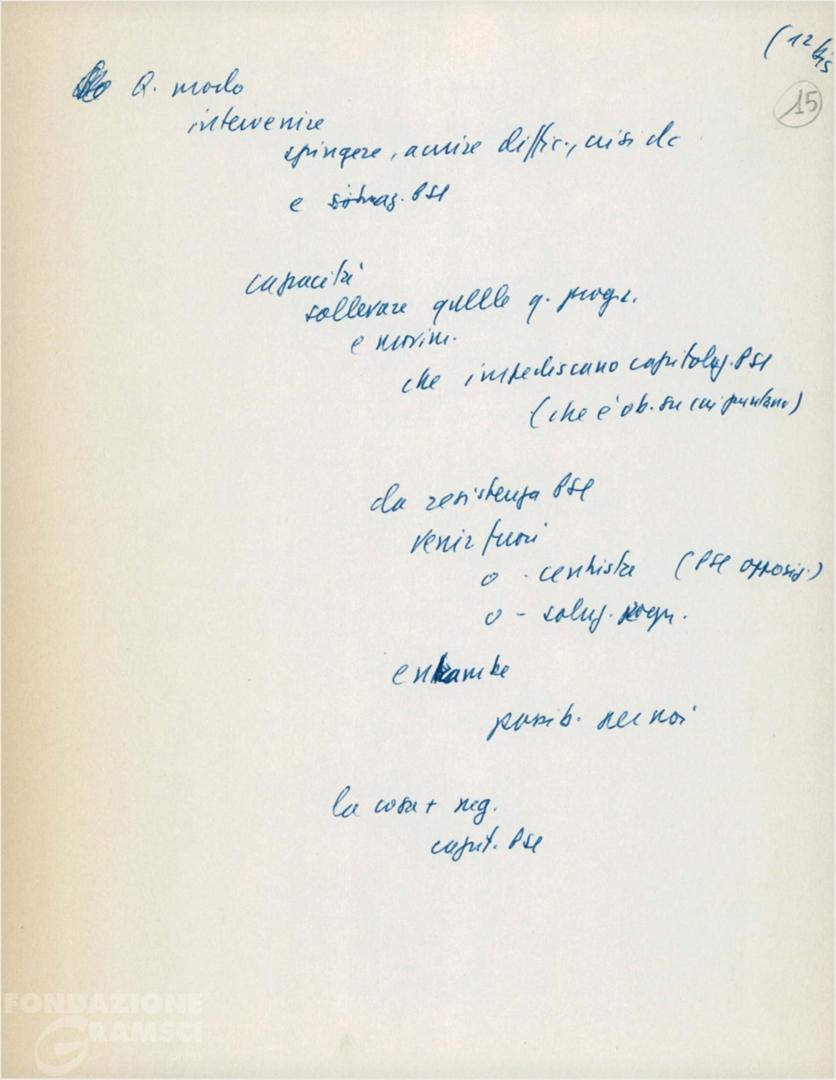 (12 bis
15
Q. modo
intervenire
spingere, acuire diffic., crisi dc
e PSI
capacità
sollevare quelle q. progr.
e movim.
che impediscano capitolaz. PSI
(che è ob. su cui puntano)
da resistenza PSI
venir fuori
o - centrista (PSI opposiz.)
o - soluz. progr.
entrambe
possib. per noi
la cosa + neg.
capit. PSI
FONDAZIONE
GRAMSCI